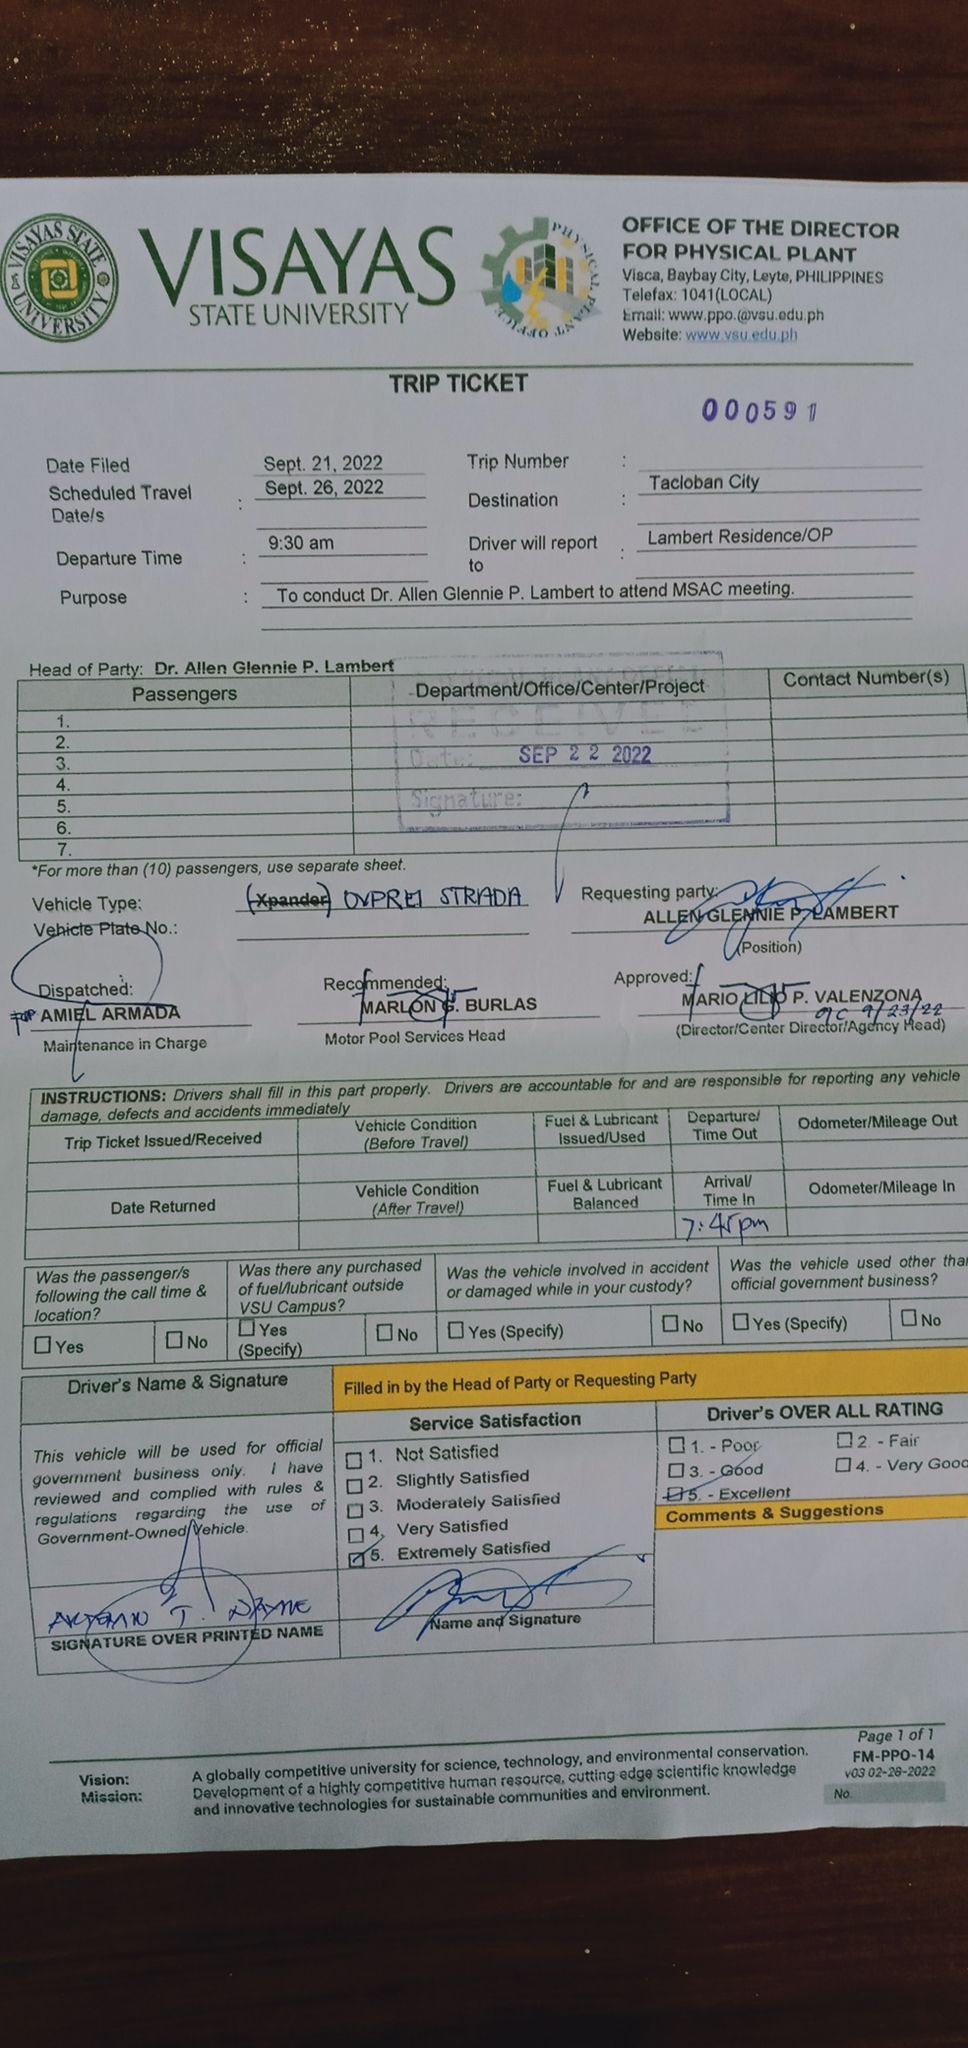 VISAYAS STATE UNIVERSITY
VISAYAS
STATE UNIVERSITY
PHYSICAL PLANT OFFICE
OFFICE OF THE DIRECTOR
FOR PHYSICAL PLANT
Visca, Baybay City, Leyte, PHILIPPINES
Telefax: 1041(LOCAL)
Email: www.ppo.@vsu.edu.ph
Website: www.vsu.edu.ph
TRIP TICKET
000591
Date Filed Sept. 21, 2022 Trip Number :
Scheduled Travel Date/s : Sept. 26, 2022 Destination : Tacloban City
Departure Time : 9:30 am Driver will report to : Lambert Residence/OP
Purpose : To conduct Dr. Allen Glennie P. Lambert to attend MSAC meeting.
Head of Party: Dr. Allen Glennie P. Lambert
Passengers Department/Office/Center/Project Contact Number(s)
1.
2.
3.
4.
5.
6.
7.
RECEIVED
Date: SEP 22 2022
Signature:
*For more than (10) passengers, use separate sheet.
Vehicle Type: (Xpander) OVPREI STRADA
Vehicle Plate No.:
Requesting party:
ALLEN GLENNIE P. LAMBERT
(Position)
Dispatched: Recommended: Approved:
AMIEL ARMADA MARLON G. BURLAS MARIO LILIO P. VALENZONA
9/23/22
Maintenance in Charge Motor Pool Services Head (Director/Center Director/Agency Head)
INSTRUCTIONS: Drivers shall fill in this part properly. Drivers are accountable for and are responsible for reporting any vehicle
damage, defects and accidents immediately
Trip Ticket Issued/Received Vehicle Condition (Before Travel) Fuel & Lubricant Issued/Used Departure/ Time Out Odometer/Mileage Out
Date Returned Vehicle Condition (After Travel) Fuel & Lubricant Balanced Arrival/ Time In Odometer/Mileage In
7:45pm
Was the passenger/s following the call time & location?
Was there any purchased of fuel/lubricant outside VSU Campus?
Was the vehicle involved in accident or damaged while in your custody?
Was the vehicle used other tha official government business?
Yes No Yes (Specify) No Yes (Specify) No Yes (Specify) No
Driver's Name & Signature
Filled in by the Head of Party or Requesting Party
This vehicle will be used for official
government business only. I have
reviewed and complied with rules &
regulations regarding the use of
Government-Owned Vehicle.
SIGNATURE OVER PRINTED NAME
Service Satisfaction
1. Not Satisfied
2. Slightly Satisfied
3. Moderately Satisfied
4. Very Satisfied
5. Extremely Satisfied
Name and Signature
Driver's OVER ALL RATING
1. - Poor 2. - Fair
3. - Good 4. - Very Good
5. - Excellent
Comments & Suggestions
Page 1 of 1
FM-PPO-14
v03 02-28-2022
No.
Vision: A globally competitive university for science, technology, and environmental conservation.
Mission: Development of a highly competitive human resource, cutting-edge scientific knowledge
and innovative technologies for sustainable communities and environment.